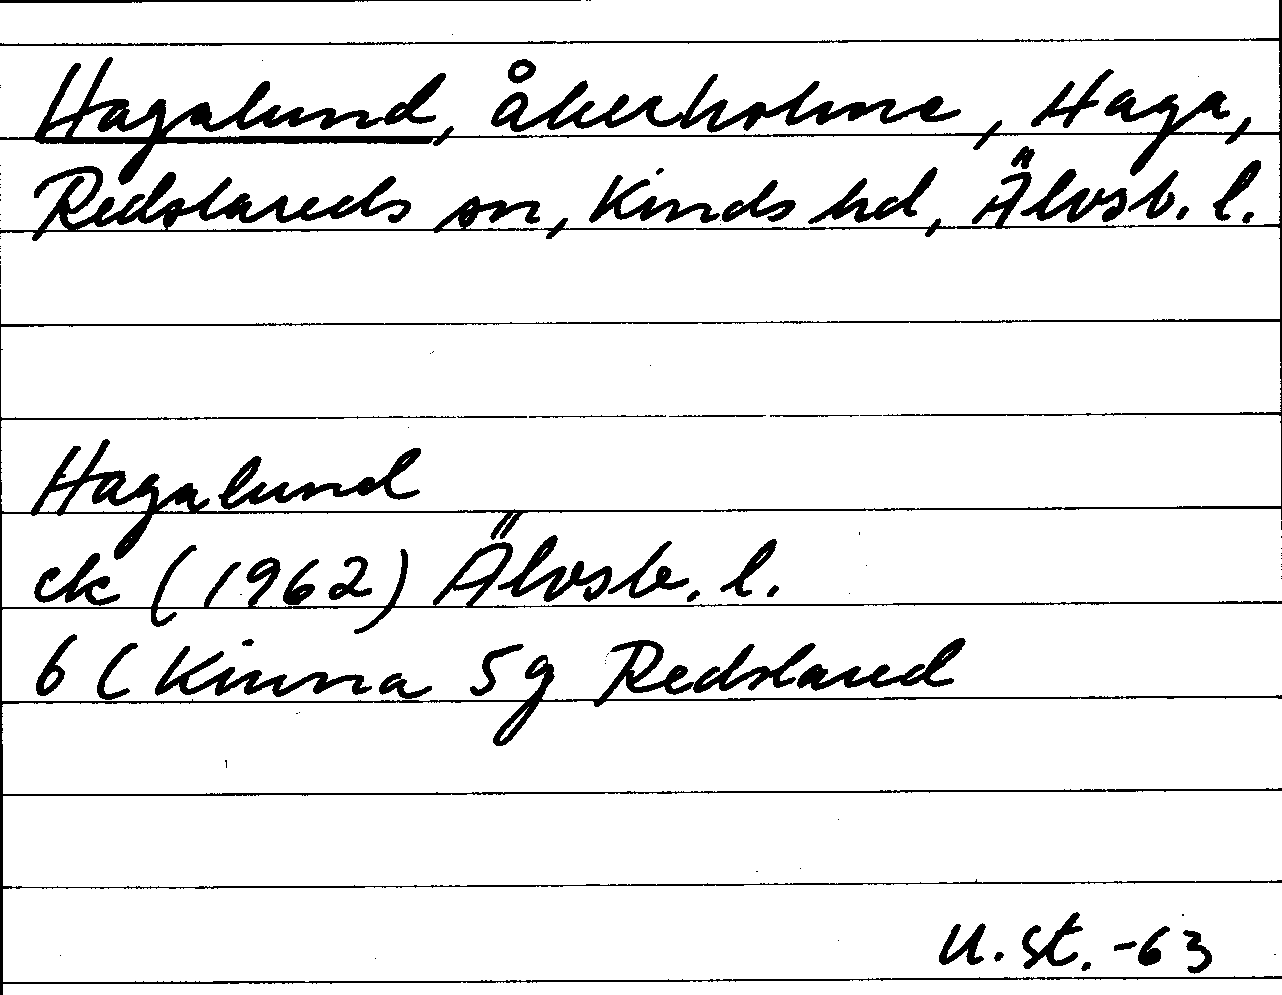 Hagalund, åkerholme, Haga,
Redslareds sn, Kinds hd, Älvsb. l.
Hagalund
ek (1962) Älvsb. l.
6 ( Kinna 5g Redslared
U. St. -63